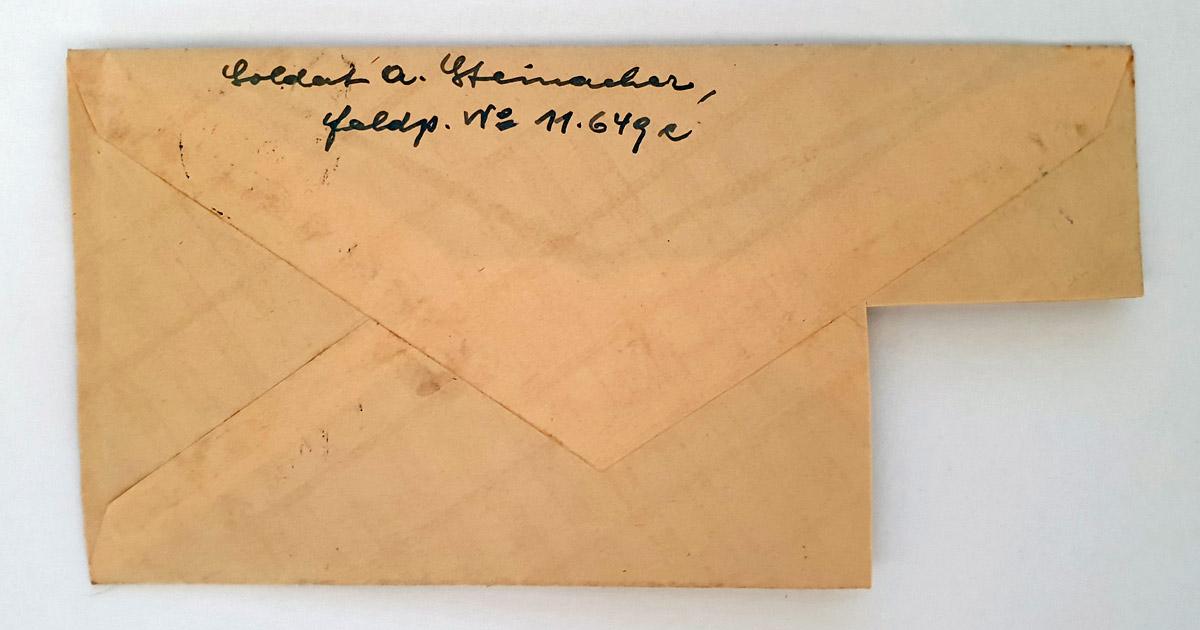 Soldat A. Steinacher,
Feldp. Nº 11.649 c